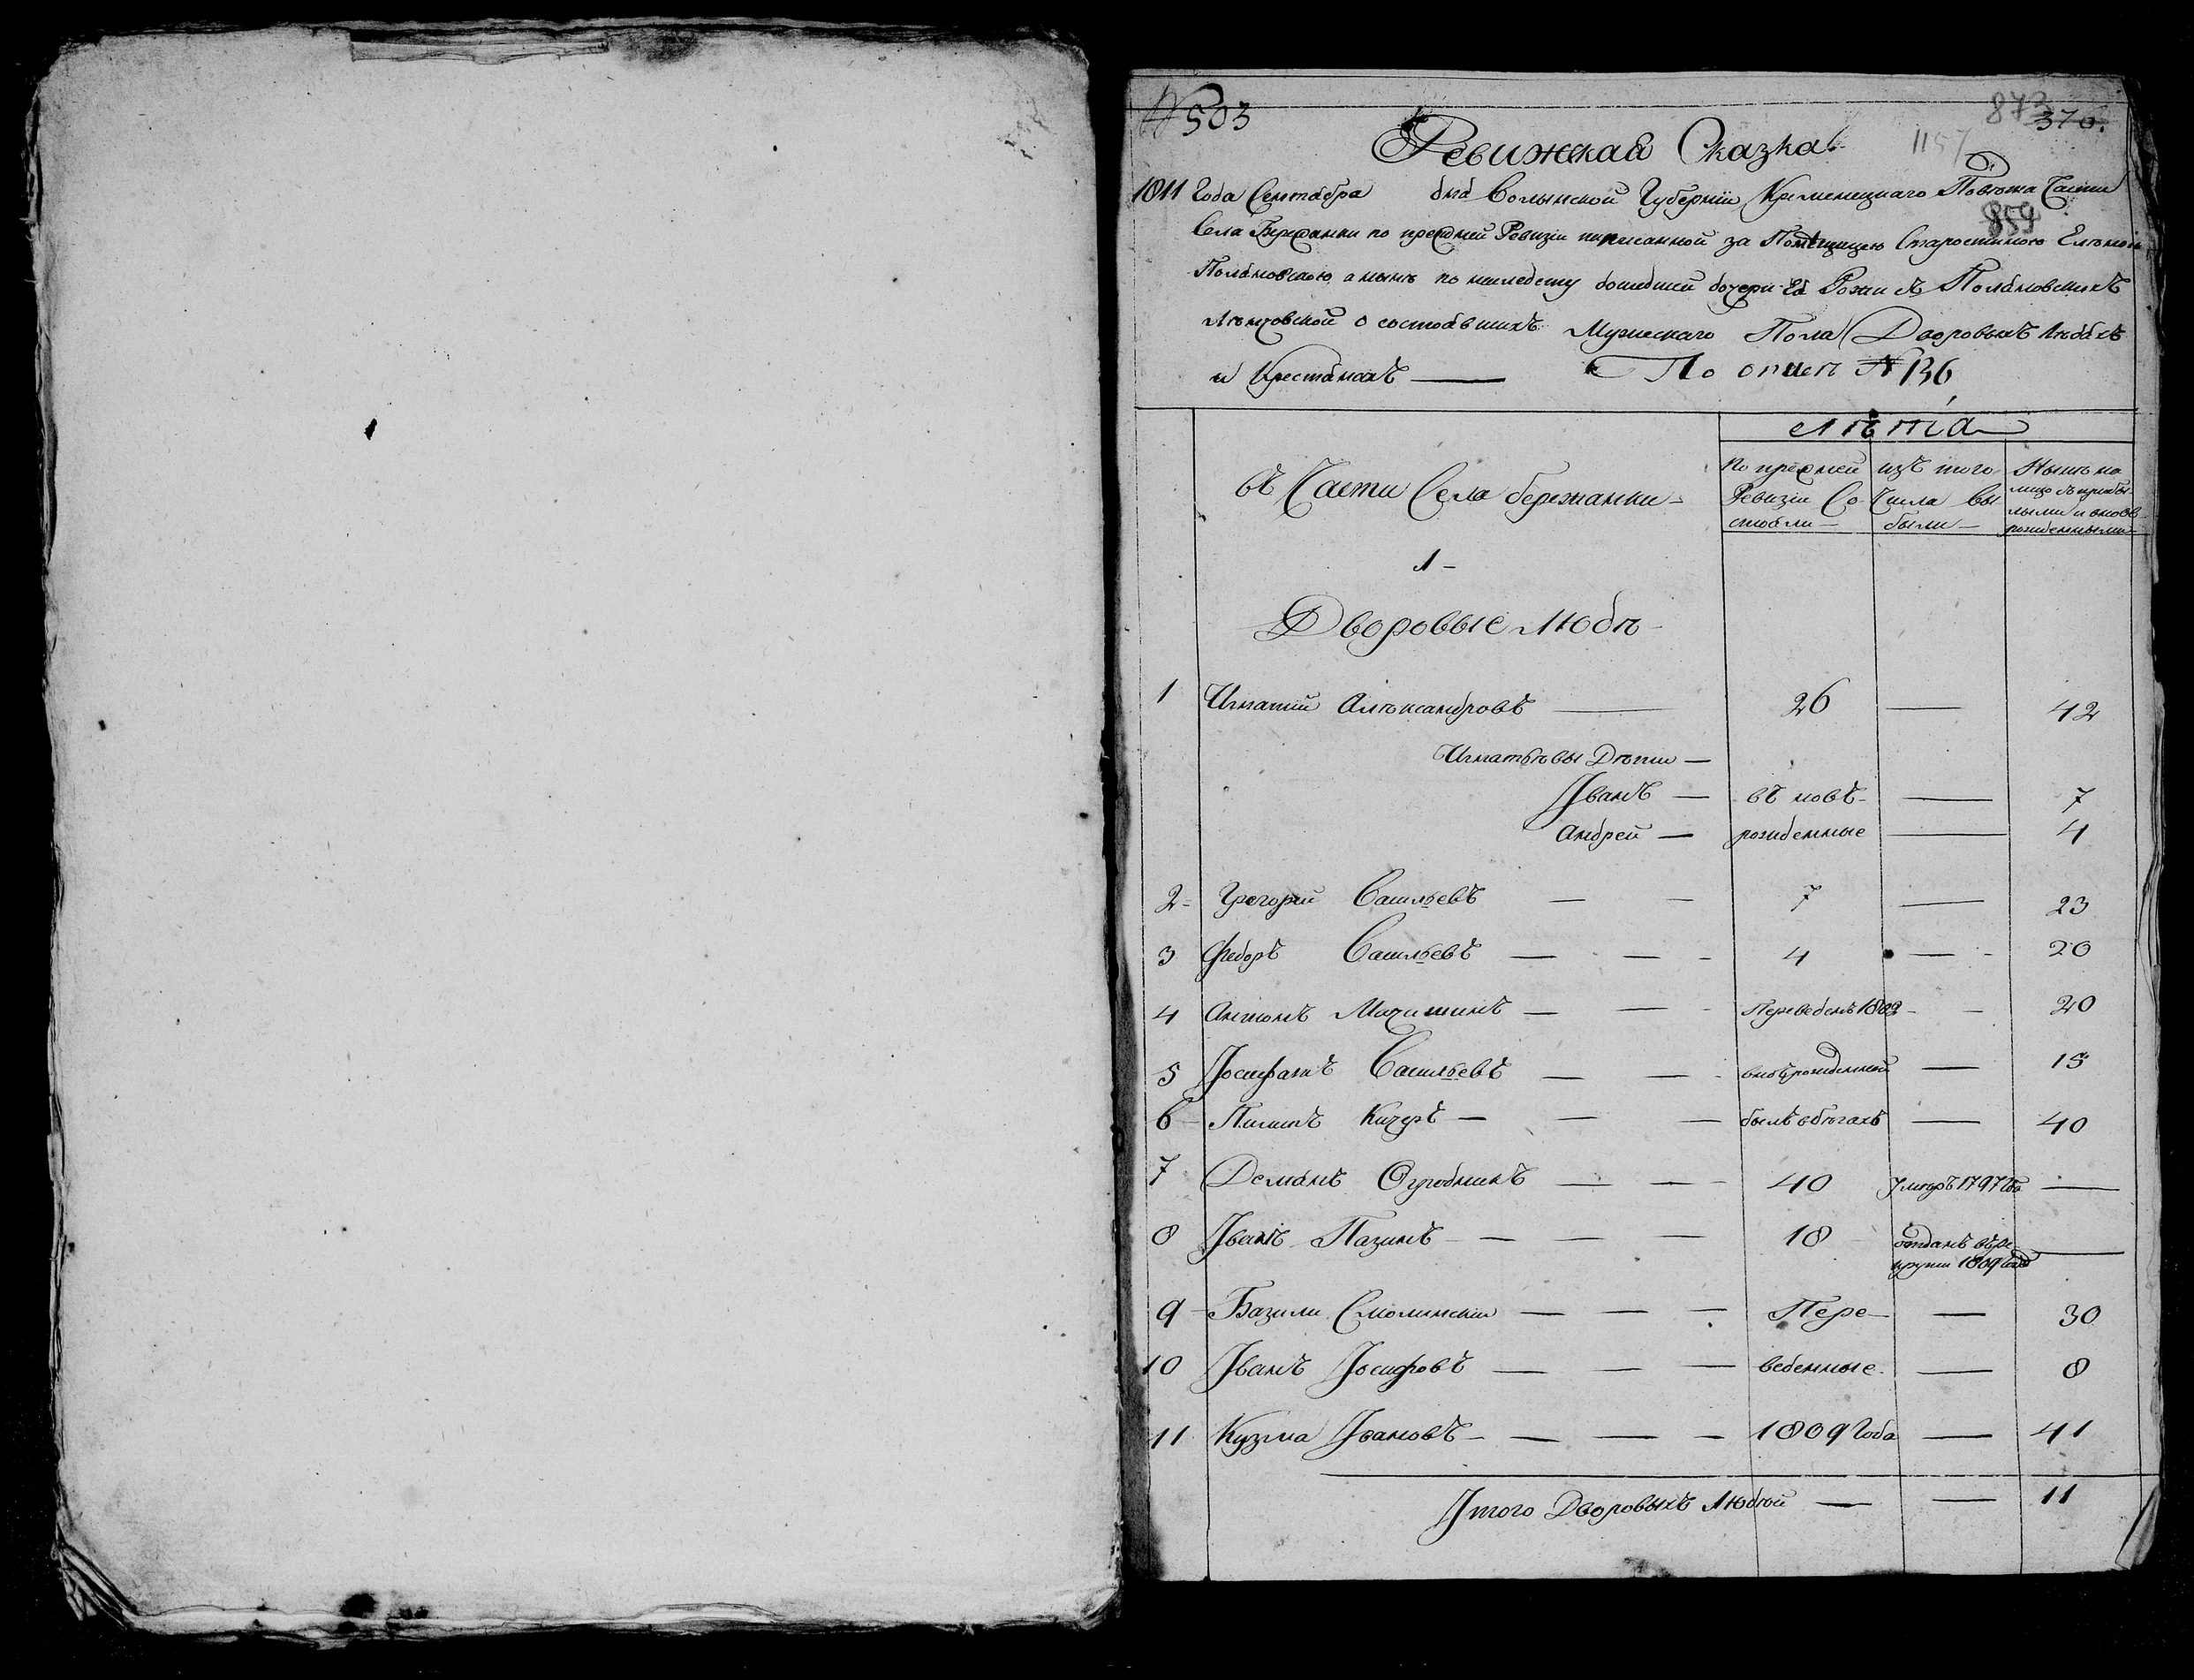 № 503
873
370.
1157
859
Ревижская Сказка
1811 Года Сентября дня Волынской Губернїи Кременецкаго Повѣта Части
Села Бережанки по прежней Ревизіи написанной за Помѣщицею Старостиною Еленою
Поляновскою а нынѣ по наследству дошедшей дочери Ея Розіи съ Поляновскихъ
о состоявшихъ Мужескаго Пола Дворовыхъ людяхъ
и Крестянахъ — По описи № 136
Лѣта
въ Части Села бережанки
По прежней Ревизіи Состояли
изъ того Числа Выбыли
Нынѣ на лицо съ прибылыми и вновь рожденными
1
Дворовые Людѣ
1 Игнатій Алѣксандровъ — 26 — 42
Игнатѣвы Дѣти —
Іванъ — въ новѣ — 7
Андрей — рожденные — 4
2 Григорій Васильевъ — — 7 — 23
3 Федоръ Васильевъ — — 4 — 20
4 Антонъ — — Переведенъ 1809 — 20
5 Іосифатъ Васильевъ — — вновѣрожденной — 15
6 Пилипъ Кучеръ — — — былъ вбѣгахъ — 40
7 Демянъ Огродникъ — — 40 Умеръ 1797 Года —
8 Іванъ Пазинъ — — — 18 отданъ въ рекруты 1809 Года —
9 Базили Смолинскій — — — Пере — 30
10 Іванъ Іосифовъ — — — веденные — 8
11 Кузма Івановъ — — — — 1809 Года — 41
Ітого Дворовыхъ Людѣй — — 11